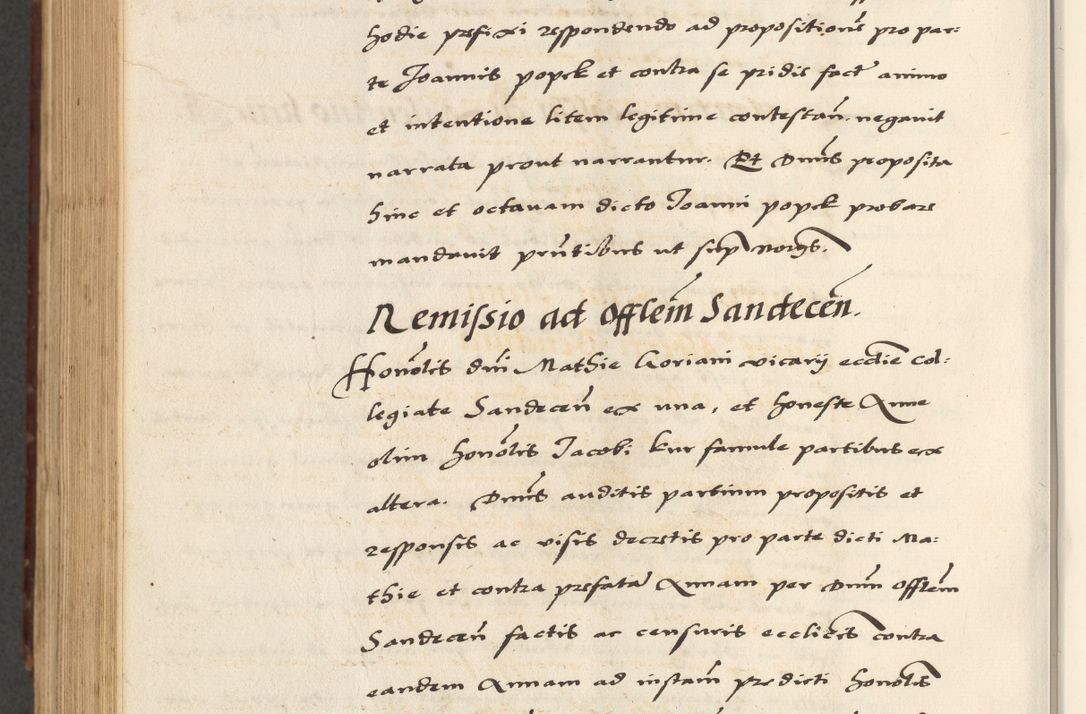 hodie prefixi respondendo ad propositionẽ pro par:
te Joannis popek et contra se pridie fact animo
et intentione litem legitime contestañ. negavit
narrata prout narrantur. Et Dnus proposita
hinc et octavam dicto Joanni popek probare
mandavit prñtibus ut sup Norgs.
Remissio ad Offlem Sandeceñ.
Honolis dñi Mathie Goriani vicarij ecclie Col:
legiate Sandeceñ ex una, et honeste Anne
olim honolis Jacobi kur famule partibus ex
altera. Dnus auditis partium propositis et
responsis ac visis decretis pro parte dicti Ma:
thie et contra prefatã Annam per Dnum Offlem
Sandeceñ factis ac censuris ecclicis contra
eandem Annam ad instañ predicti honolis